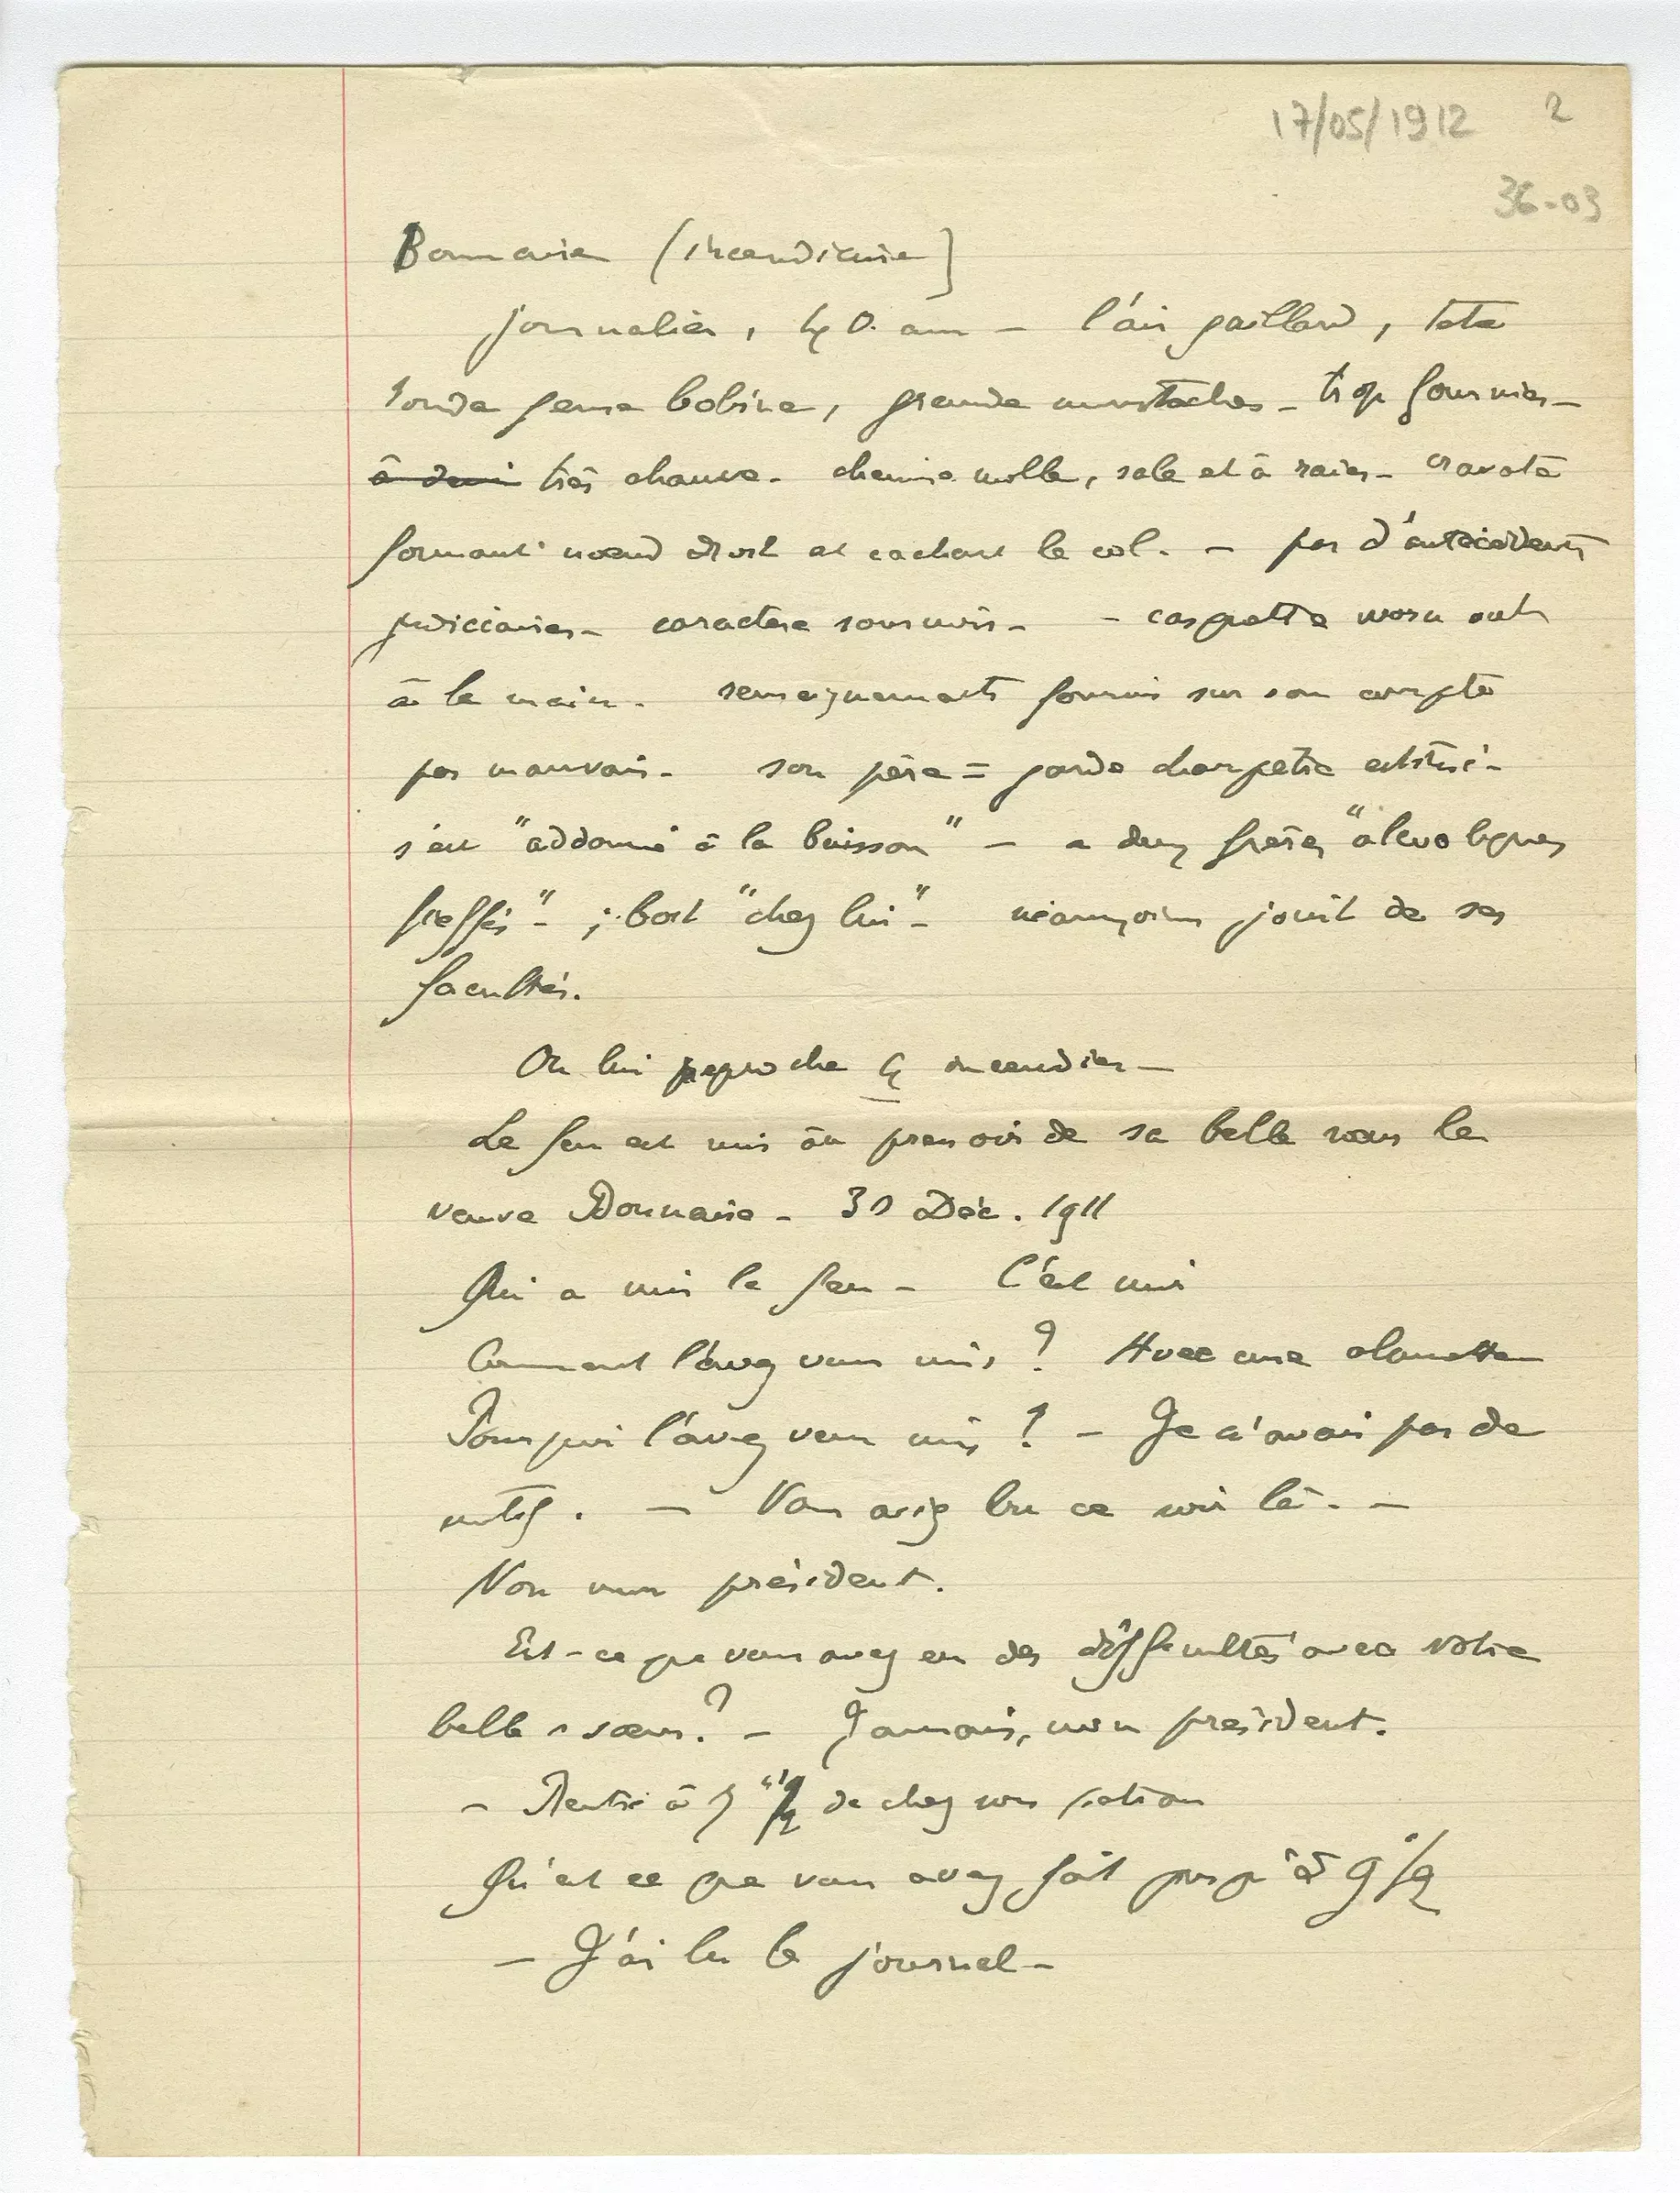 17/05/1912 2
36-03
Bonnaire (incendiaire)
journalier, 40 ans — l'air gaillard, tête
ronde genre bobine, grande moustaches — trop fournies —
à demi très chauve. chemise molle, sale et à raies — cravate
formant nœud droit et cachant le col. — pas d'antécédents
judiciaires — caractère sournois — — casquette
à la main. renseignements fournis sur son compte
pas mauvais — son père = garde champêtre
s'est "addonné à la boisson" — a deux frères "alcooliques
fieffés" — ; boit "chez lui" — néanmoins jouit de ses
facultés.
On lui reproche 4 incendies —
Le feu est mis au pressoir de sa belle sœur la
veuve Bonnaire — 31 Déc. 1911
Qui a mis le feu — C'est moi
Comment l'avez vous mis ? Avec une alumette
Pourquoi l'avez vous mis ? — Je n'avais pas de
motif. — Vous aviez bu ce soir là. —
Non mon président.
Est-ce que vous avez eu des difficultés avec votre
belle sœur ? — Jamais, mon président.
— Rentré à 7 1/2 de chez son patron
Qu'est ce que vous avez fait jusqu'à 9 1/2
— J'ai lu le journal —